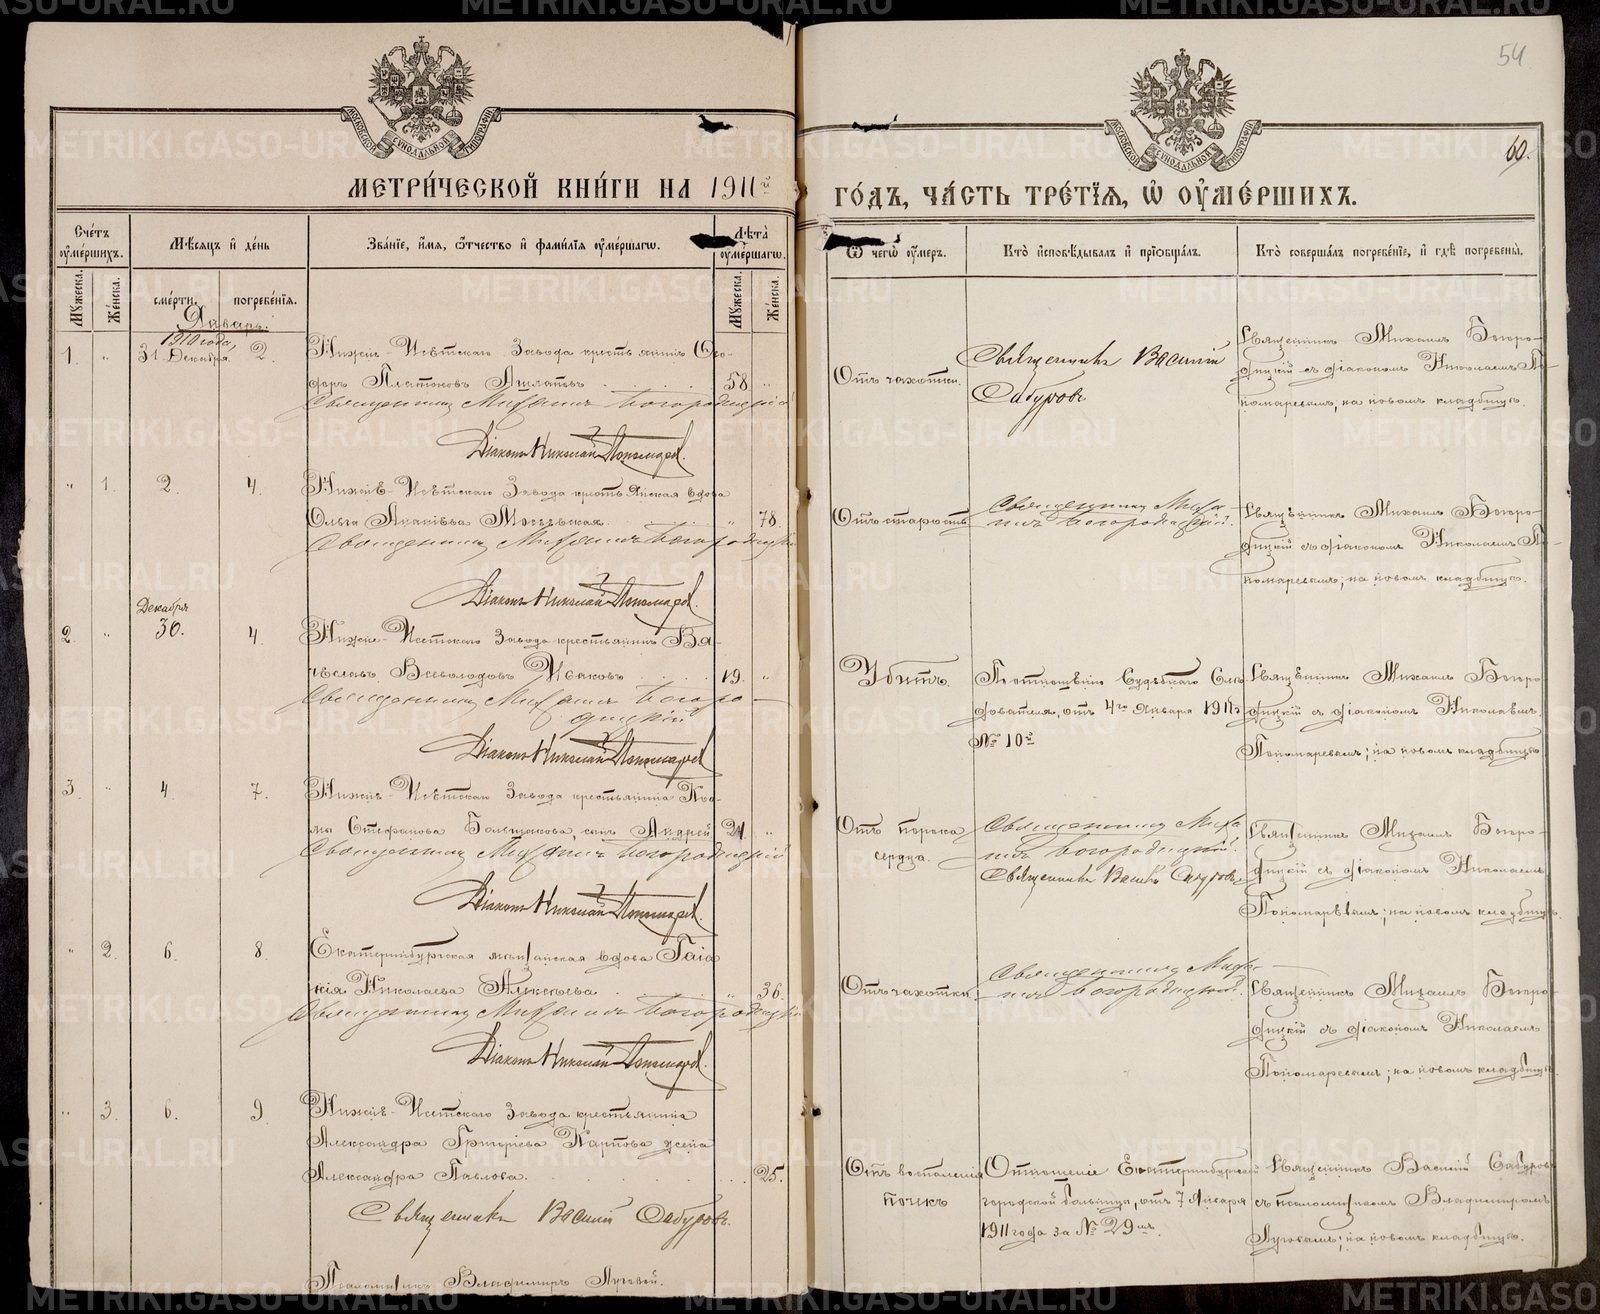 54
60.
МОСКОВСКОЙ СѴНОДАЛЬНОЙ ТИПОГРАФІИ
МОСКОВСКОЙ СѴНОДАЛЬНОЙ ТИПОГРАФІИ
МЕТРИ́ЧЕСКОЙ КНИ́ГИ НА 1911й
ГО́ДЪ, ЧА́СТЬ ТРЕ́ТІЯ, Ѽ ОУ҆МЕ́РШИХЪ.
Сче́тъ оуме́ршихъ.
Мꙋжеска.
Же́нска.
Мѣсяцъ и де́нь
сме́рти.
погребе́нія.
Зва́ніе, и́мя, ѻтчество и фами́лія оуме́ршагѡ.
Лѣта̀ оуме́ршагѡ.
Мꙋжеска.
Же́нска.
Ѿ чегѡ̀ оу́меръ.
Кто̀ исповѣ́дывалъ и пріобща́лъ.
Кто̀ соверша́лъ погребе́ніе, и гдѣ̀ погребены̀.
Январь.
1. " 1910 года, 31 Декабря. 2.
Нижне-Исетскаго Завода крестьянинъ Ѳео-
доръ Платоновъ 58 "
Священникъ Михаилъ Богородицкій
Діаконъ Николай Пономаревъ.
Отъ чахотки.
Священникъ Василій
Сабуровъ
Священникъ Михаилъ Богоро-
дицкій съ діакономъ Николаемъ По-
номаревымъ, на новомъ кладбищѣ.
" 1. 2. 4.
Нижне-Исетскаго Завода крестьянская вдова
Ольга " 78.
Священникъ Михаилъ Богородицкій
Діаконъ Николай Пономаревъ.
Отъ старости
Священникъ Миха-
илъ Богородицкій.
Священникъ Михаилъ Богоро-
дицкій съ діакономъ Николаемъ По-
номаревымъ; на новомъ кладбищѣ.
2. " Декабря 30. 4.
Нижне-Исетскаго Завода крестьянинъ Вя-
чеславъ Всеволодовъ Исаковъ 19. "
Священникъ Михаилъ Богоро-
дицкій
Діаконъ Николай Пономаревъ
Убитъ.
По отношенію Судебнаго Слѣ-
дователя, отъ 4го Января 1911 г.
№ 10й
Священникъ Михаилъ Богоро-
дицкій съ діакономъ Николаемъ
Пономаревымъ; на новомъ кладбищѣ
3. " 4. 7.
Нижне-Исетскаго Завода крестьянина Коз-
мы Стефанова Большакова, сынъ Андрей 21. "
Священникъ Михаилъ Богородицкій
Діаконъ Николай Пономаревъ.
Отъ порока
сердца.
Священникъ Миха-
илъ Богородицкій.
Священникъ Василій Сабуровъ
Священникъ Михаилъ Богоро-
дицкій съ діакономъ Николаемъ
Пономаревымъ; на новомъ кладбищѣ.
" 2. 6. 8.
Екатеринбургская мѣщанская вдова
Николаева Алексѣева " 36.
Священникъ Михаилъ Богородицкій
Діаконъ Николай Пономаревъ.
Отъ чахотки.
Священникъ Миха-
илъ Богородицкій.
Священникъ Михаилъ Богоро-
дицкій съ діакономъ Николаемъ
Пономаревымъ; на новомъ кладбищѣ.
" 3. 6. 9.
Нижне-Исетскаго Завода крестьянина
Александра Григорьева Карпова жена
Александра Павлова. 25.
Священникъ Василій Сабуровъ.
Псаломщикъ Владимиръ Луговой.
Отъ воспаленія
почекъ
Отношеніе Екатеринбургской
городской больницы, отъ 7 Января
1911 года за № 29мъ.
Священникъ Василій Сабуровъ
съ псаломщикомъ Владимиромъ
Луговымъ; на новомъ кладбищѣ.
METRIKI.GASO-URAL.RU